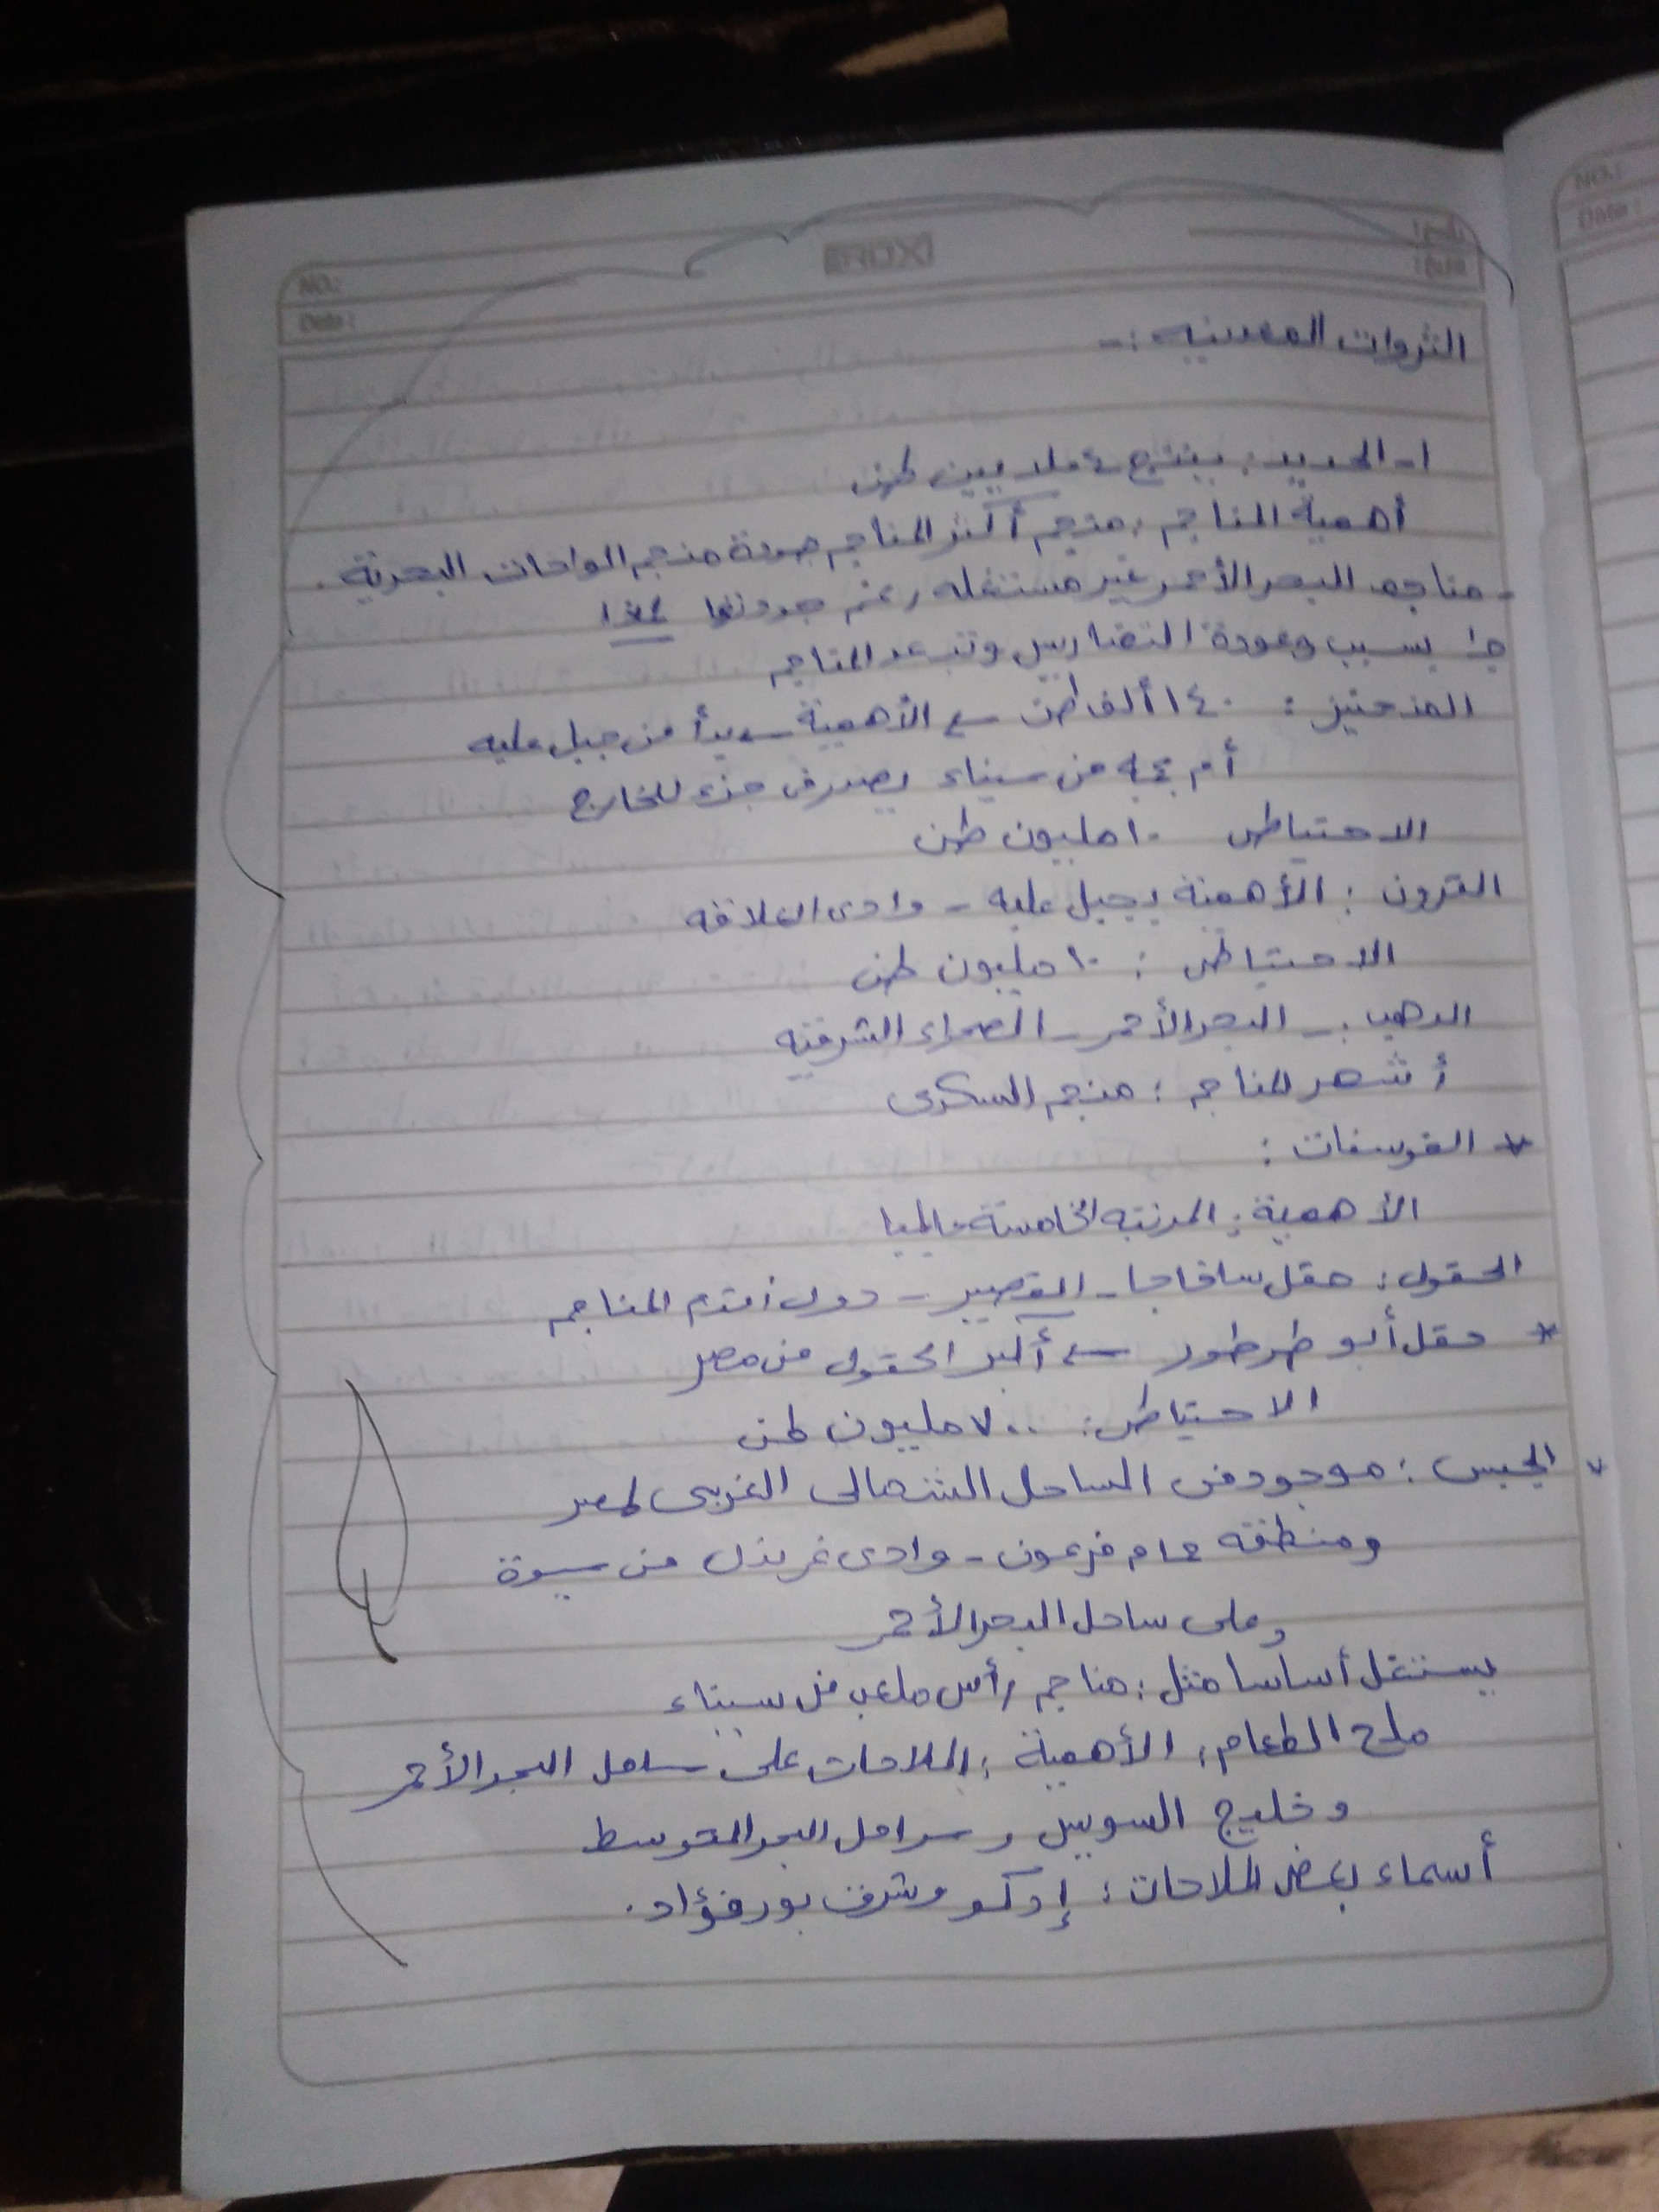 NO.:
Date :
EROXI
الثروات المعدنيه :-
١- الحديد : ينتج ٤ ملايين طن
أهمية المناجم : منجم أكثر المناجم جودة منجم الواحات البحرية .
- مناجم البحر الأحمر غير مستغله رغم جودتها
جـ/ بسبب وعودة التضاريس وتبعد المناجم
المنجنيز : ١٤٠ ألف طن الأهمية يبدأ من جبل علبه
أم بجمه من سيناء يصدر جزء للخارج
الاحتياطى ١٠ مليون طن
الأهمية بجبل علبه - وادى العلاقه
الاحتياطى : ١٠ مليون طن
الدهب :- البحر الأحمر - الصحراء الشرقيه
أشهر المناجم : منجم السكرى
* الفوسفات :
الأهمية : المرتبه الخامسة عالميا
الحقول : حقل سافاجا - القصير - أقدم المناجم
* حقل أبو طرطور ← أكبر الحقول من مصر
الاحتياطى : ٧٠٠ مليون طن
الجبس : موجود فى الساحل الشمالى الغربى لمصر
ومنطقه حمام فرعون - وادى غرندل من سيوة
وعلى ساحل البحر الأحمر
يستغل أساسا مثل : مناجم رأس ملعب فى سيناء
ملح الطعام : الأهمية : الملاحات على ساحل البحر الأحمر
و خليج السويس و سواحل البحر المتوسط
أسماء بعض الملاحات : إدكو وشرق بور فؤاد .
NO.:
Date :